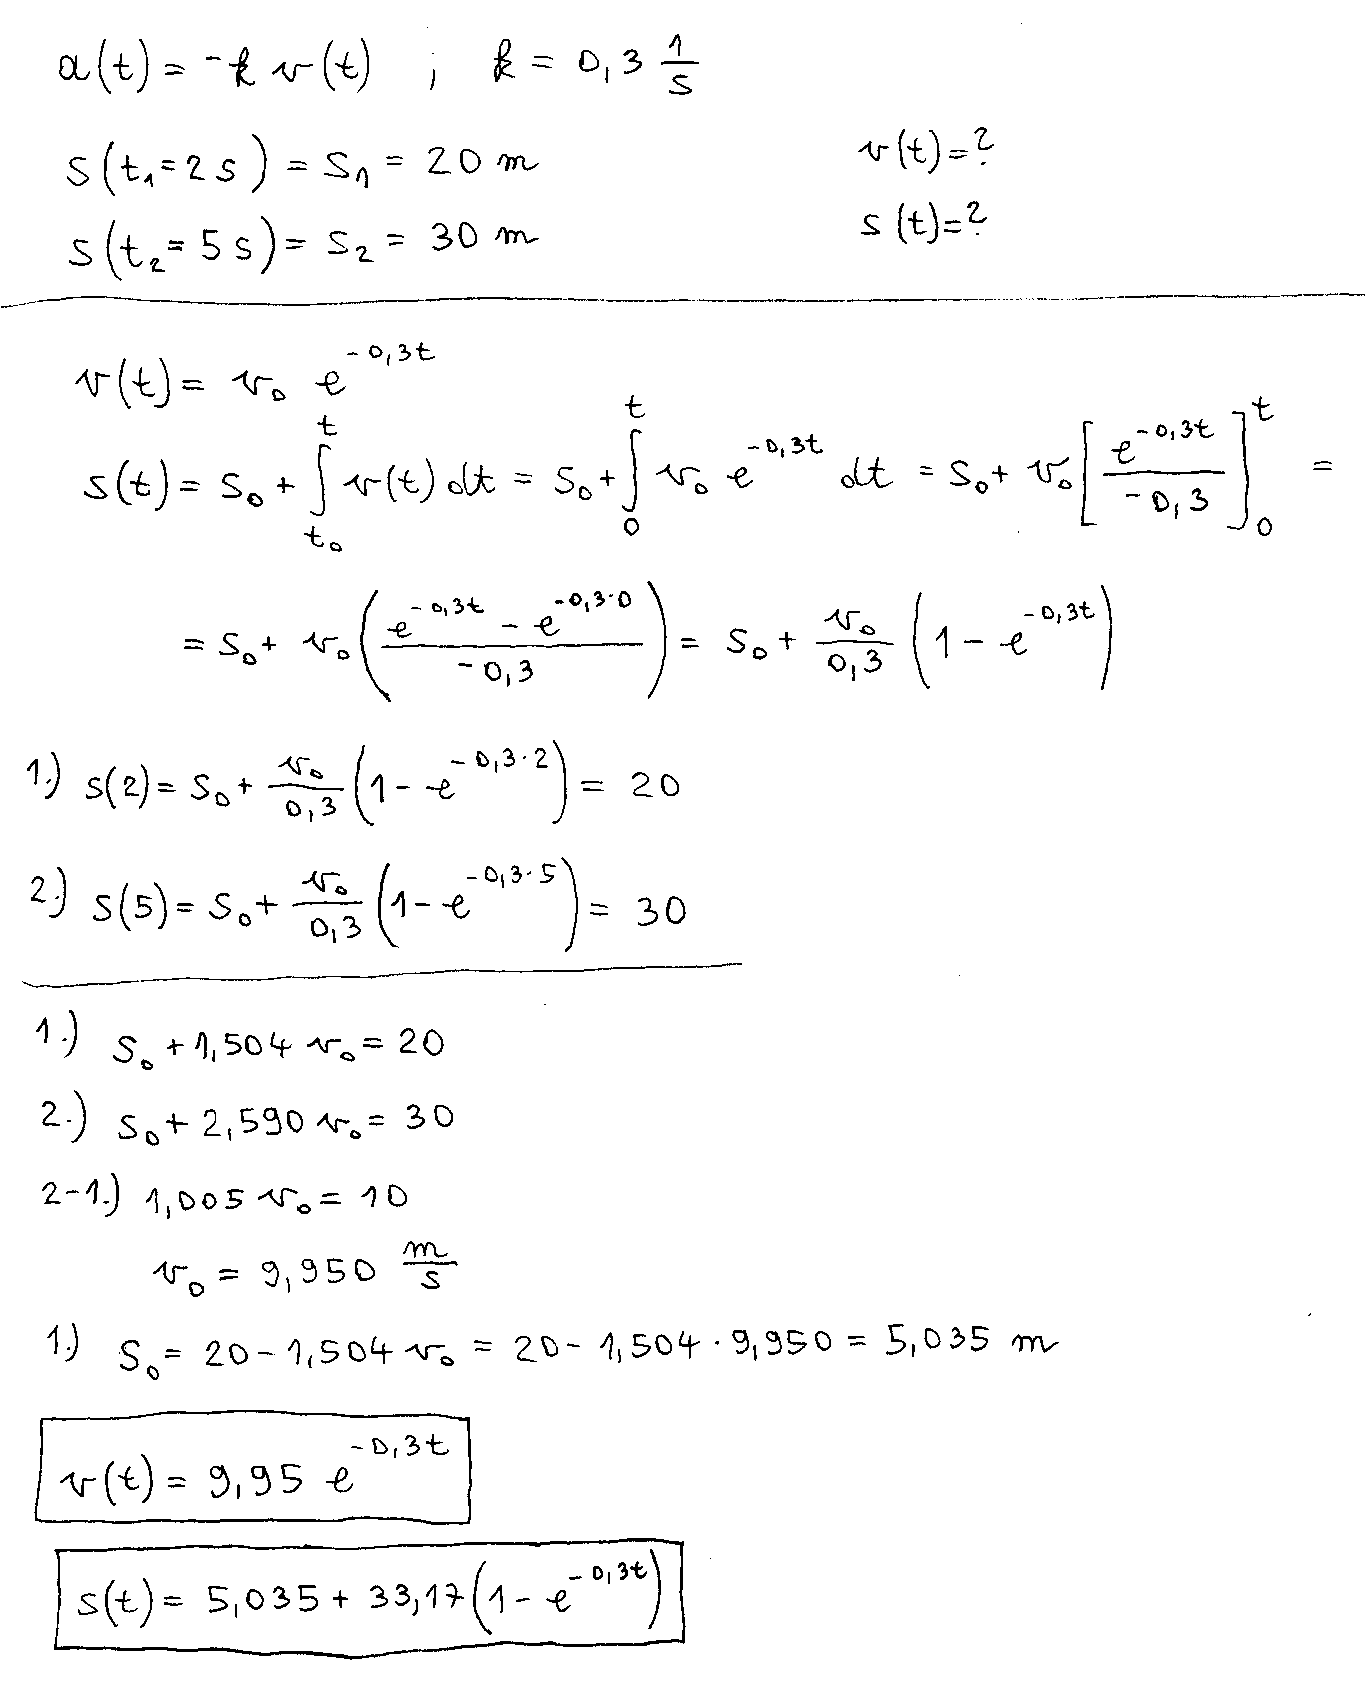 a(t) = -k v(t) ; k = 0,3 1/s
s(t₁=2s) = s₁ = 20 m v(t)=?
s(t₂=5s) = s₂ = 30 m s(t)=?
v(t) = v₀ e^(-0,3t)
s(t) = s₀ + ∫_{t₀}^{t} v(t) dt = s₀ + ∫_{0}^{t} v₀ e^(-0,3t) dt = s₀ + v₀ [e^(-0,3t) / -0,3]_{0}^{t} =
= s₀ + v₀ ((e^(-0,3t) - e^(-0,3·0)) / -0,3) = s₀ + v₀/0,3 (1 - e^(-0,3t))
1.) s(2) = s₀ + v₀/0,3 (1 - e^(-0,3·2)) = 20
2.) s(5) = s₀ + v₀/0,3 (1 - e^(-0,3·5)) = 30
1.) s₀ + 1,504 v₀ = 20
2.) s₀ + 2,590 v₀ = 30
2-1.) 1,005 v₀ = 10
v₀ = 9,950 m/s
1.) s₀ = 20 - 1,504 v₀ = 20 - 1,504 · 9,950 = 5,035 m
v(t) = 9,95 e^(-0,3t)
s(t) = 5,035 + 33,17 (1 - e^(-0,3t))